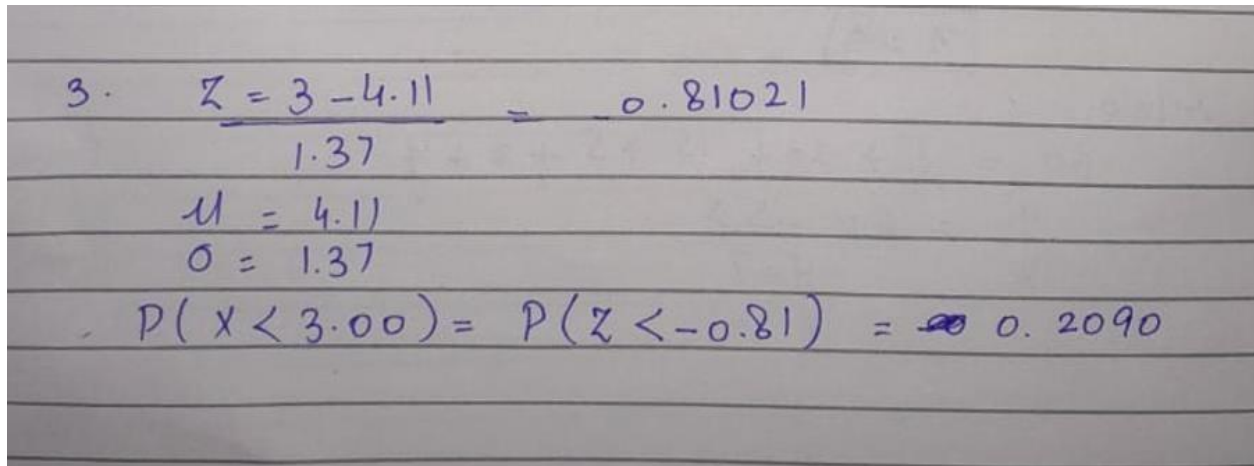 3. Z = 3 - 4.11 = -0.81021
1.37
μ = 4.11
σ = 1.37
P(X < 3.00) = P(Z < -0.81) = 0.2090